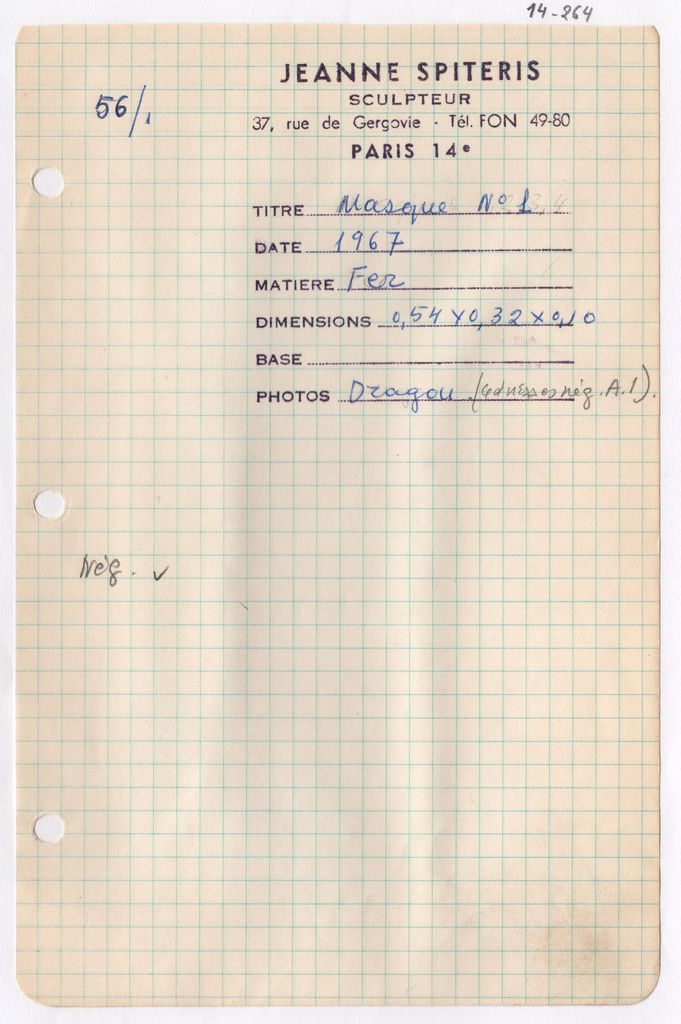 14-264
56/1
JEANNE SPITERIS
SCULPTEUR
37, rue de Gergovie - Tél. FON 49-80
PARIS 14e
TITRE Masque No 1
DATE 1967
MATIERE Fer
DIMENSIONS 0,54 x 0,32 x 0,10
BASE
PHOTOS Dragou nég. A.1).
Nég. ✓